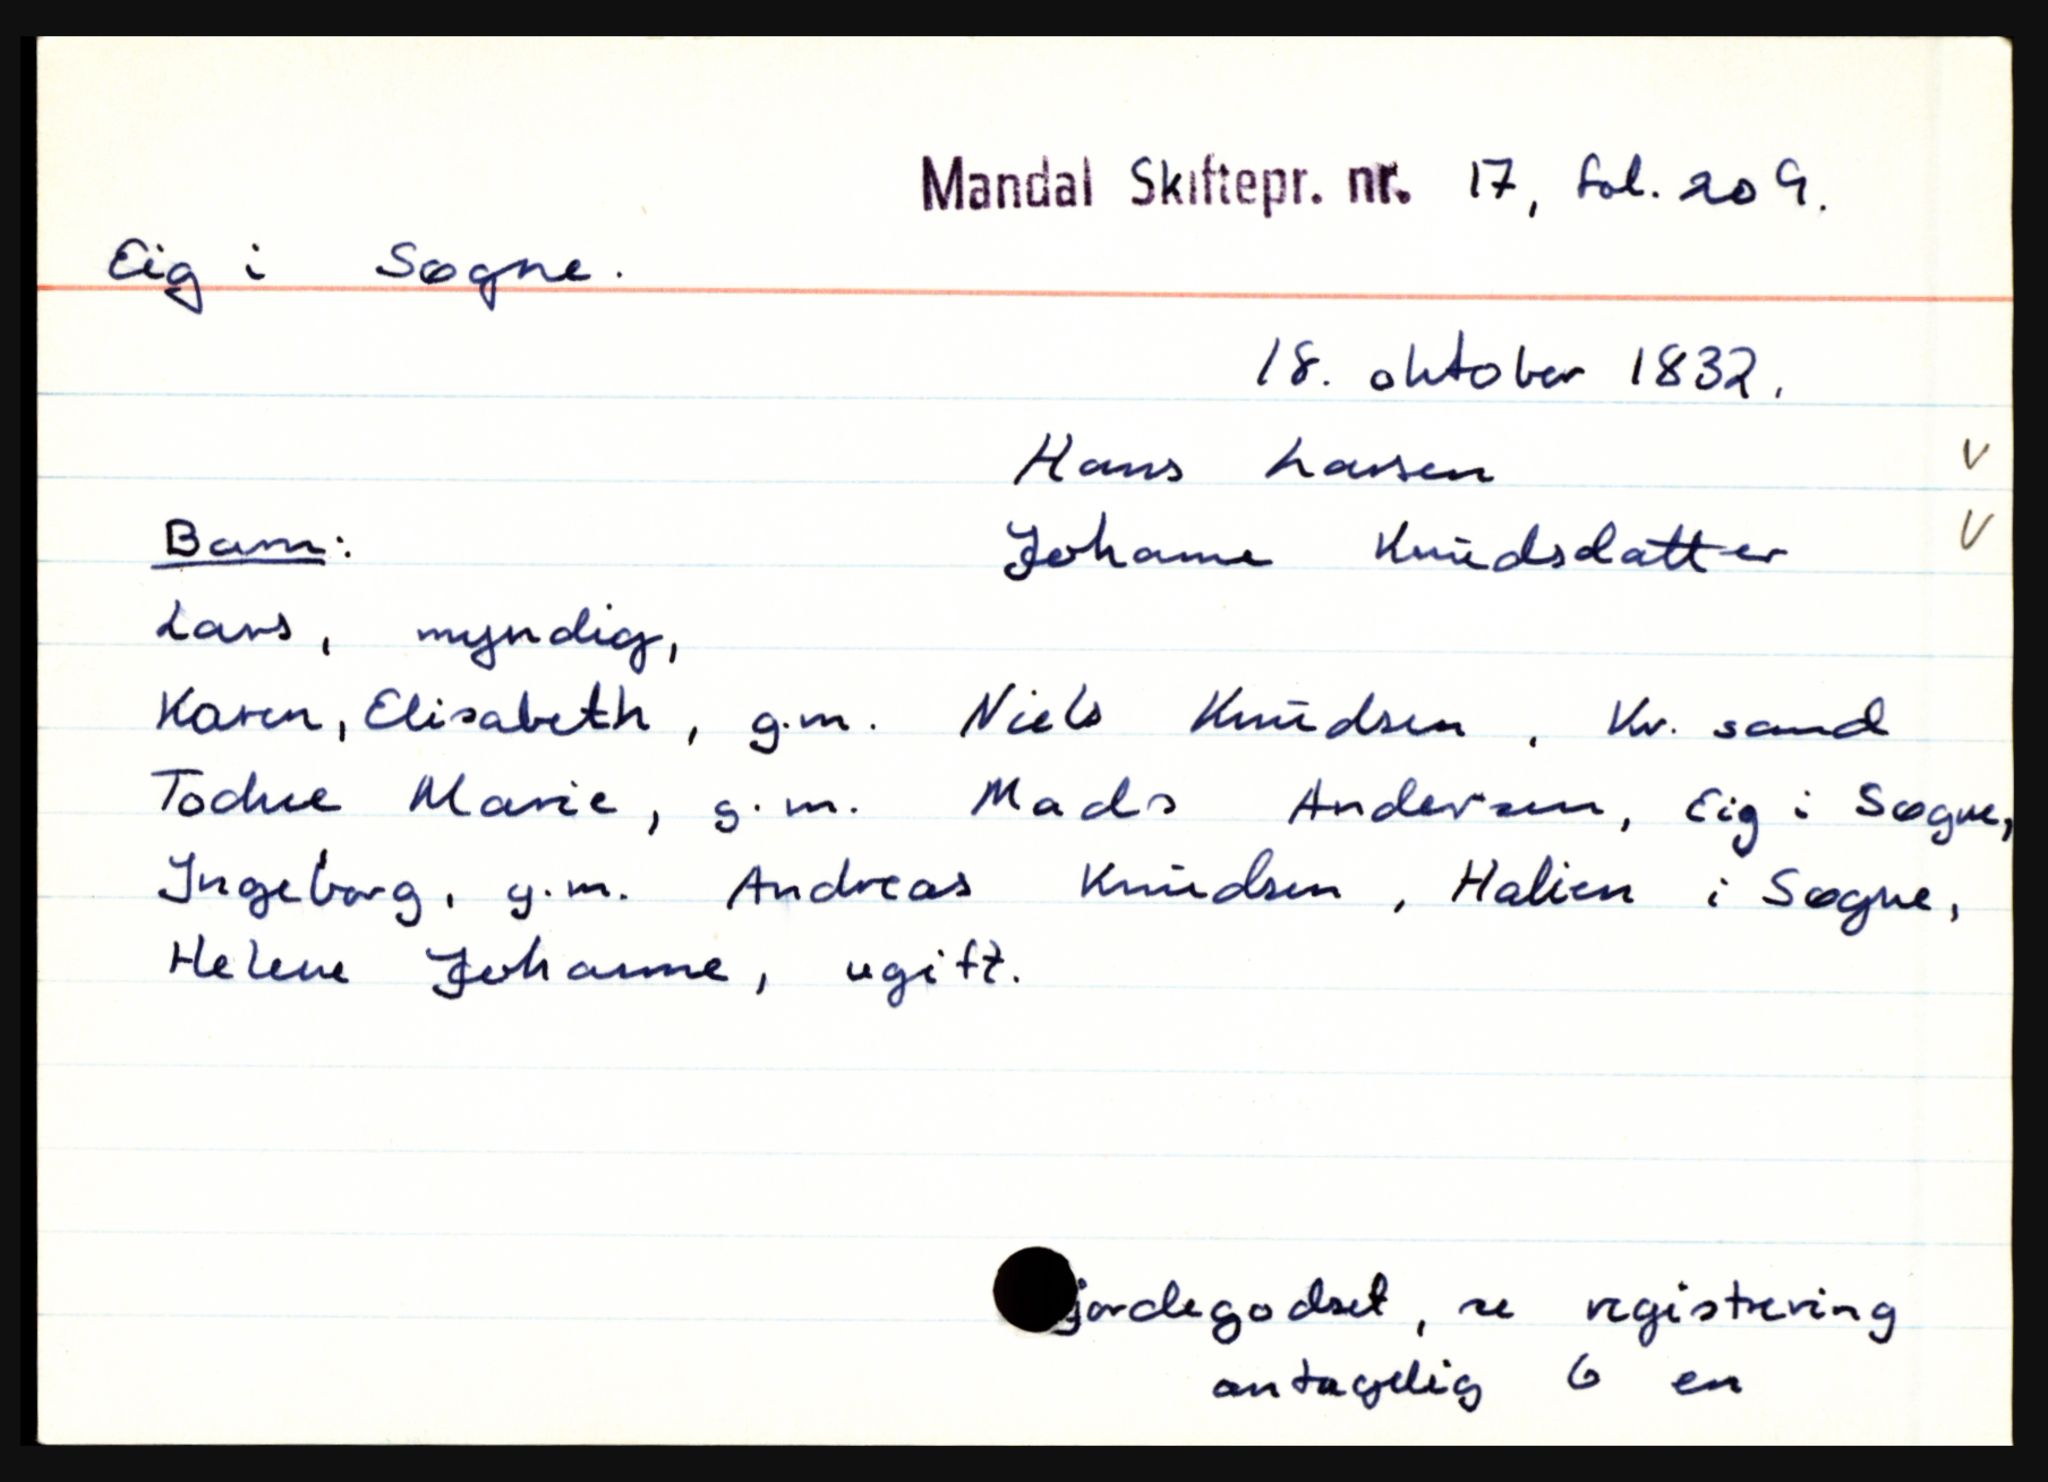 Mandal Skiftepr. nr. 17, fol. 209.
Eig i Søgne.
18. oktober 1832.
Hans Larsen V
Johanne Knudsdatter V
Barn:
Lars, myndig,
Karen, Elisabeth, g.m. Niels Knudsen, Kr. sand
Todne Marie, g.m. Mads Andersen, Eig i Søgne,
Ingeborg, g.m. Andreas Knudsen, Halien i Søgne,
Helene Johanne, ugift.
jordegodset, se registrering
antagelig 6 en